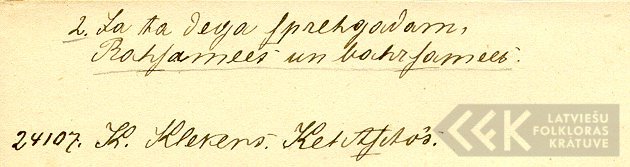 2. La ta dega sprehgadam,
Rahjamees un bahrsamees.
24107. K. Klekers.
LATVIEŠU
FOLKLORAS
KRĀTUVE